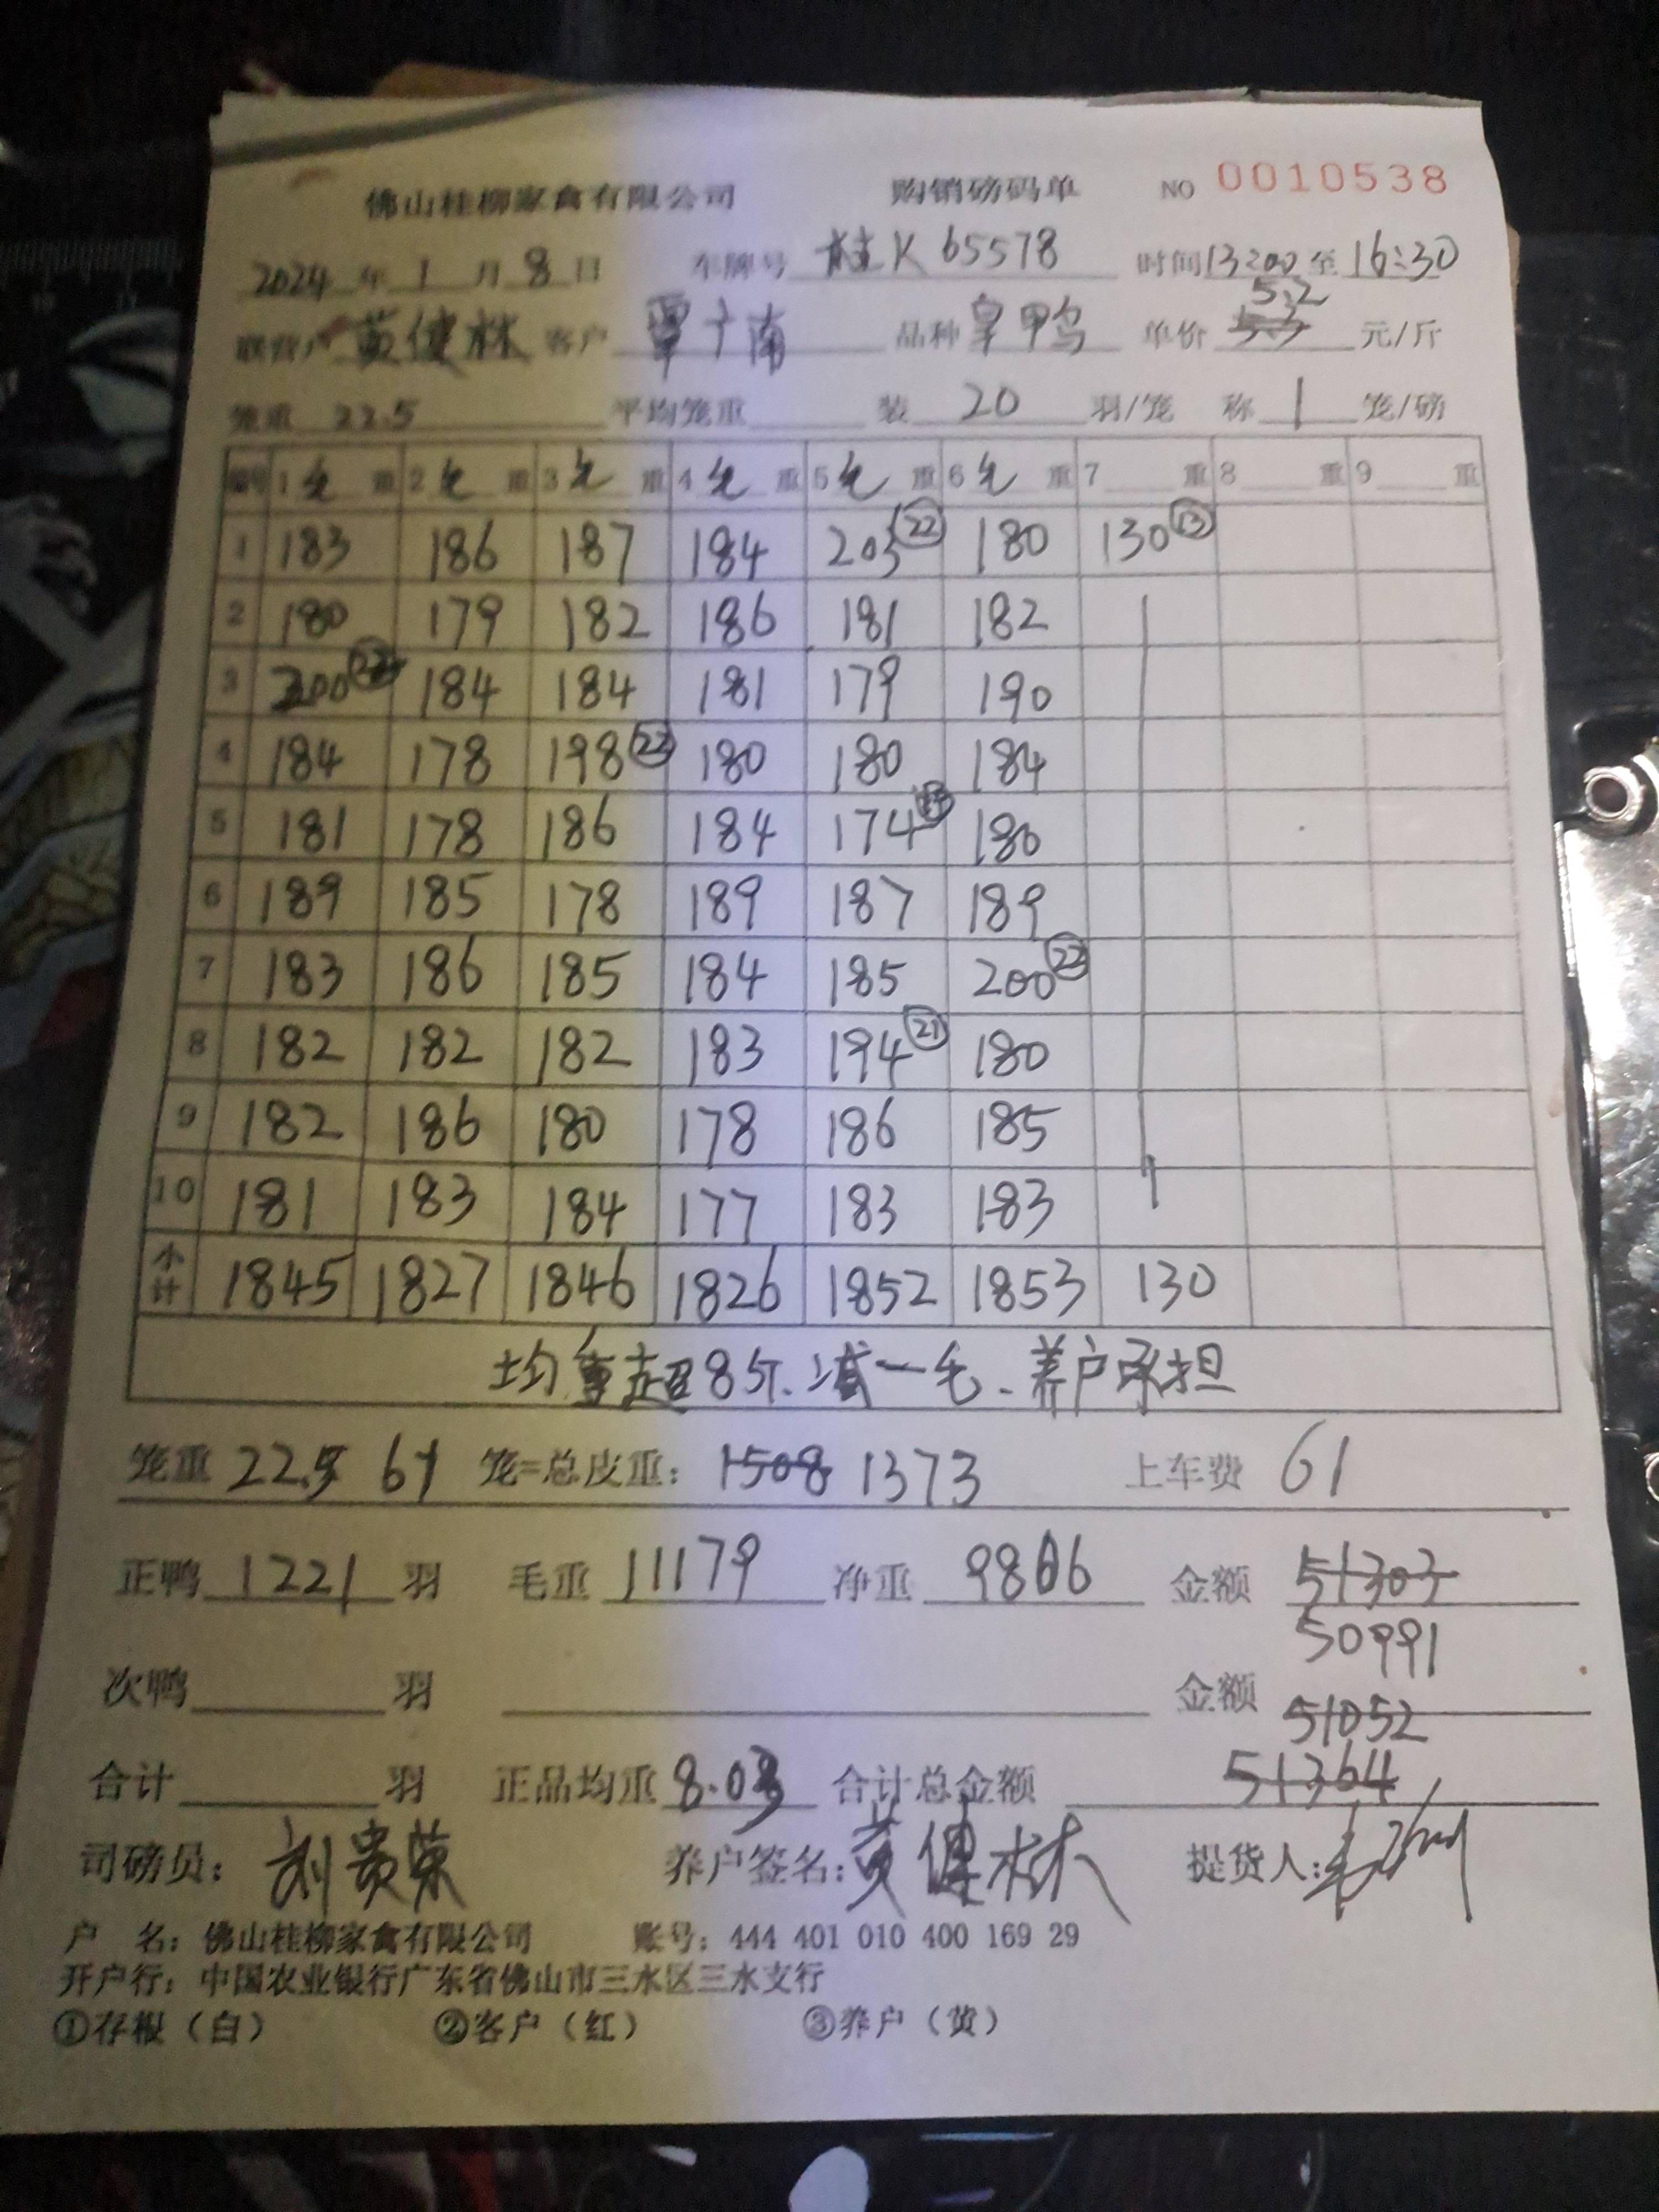 佛山桂柳家禽有限公司 购销磅码单 NO 0010538
2024年1月8日 车牌号 桂K65578 时间13:00至16:30
5.2
联营户 黄健林 客户 覃广南 品种 皇鸭 单价 5.3 元/斤
笼重 22.5 平均笼重 装 20 羽/笼 称 1 笼/磅
编号 1毛重 2毛重 3毛重 4毛重 5毛重 6毛重 7重 8重 9重
1 183 186 187 184 203㉒ 180 130⑬
2 180 179 182 186 181 182
3 200㉒ 184 184 181 179 190
4 184 178 198㉒ 180 180 184
5 181 178 186 184 174 180
6 189 185 178 189 187 189
7 183 186 185 184 185 200㉒
8 182 182 182 183 194㉑ 180
9 182 186 180 178 186 185
10 181 183 184 177 183 183
小计 1845 1827 1846 1826 1852 1853 130
均重超8斤、减一毛、养户承担
笼重 22.5 61 笼=总皮重: 1508 1373 上车费 61
正鸭 1221 羽 毛重 11179 净重 9806 金额 51303
50991
次鸭 羽 金额 51052
合计 羽 正品均重 8.03 合计总金额 51364
司磅员: 刘贵荣 养户签名: 黄健林 提货人:
户 名: 佛山桂柳家禽有限公司 账号: 444 401 010 400 169 29
开户行: 中国农业银行广东省佛山市三水区三水支行
①存根（白） ②客户（红） ③养户（黄）